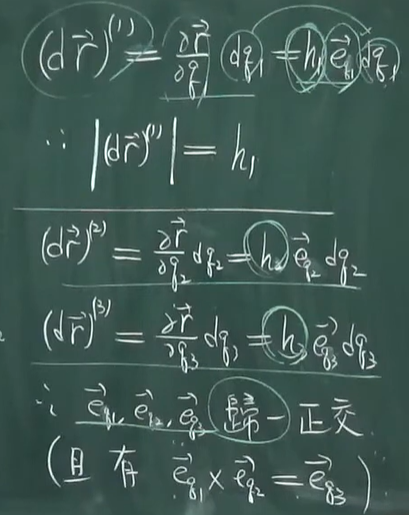 (d\vec{r})^{(1)} = \frac{∂\vec{r}}{∂q_1} dq_1 = h_1 \vec{e}_{q_1} dq_1
∵ |(d\vec{r})^{(1)}| = h_1
(d\vec{r})^{(2)} = \frac{∂\vec{r}}{∂q_2} dq_2 = h_2 \vec{e}_{q_2} dq_2
(d\vec{r})^{(3)} = \frac{∂\vec{r}}{∂q_3} dq_3 = h_3 \vec{e}_{q_3} dq_3
∵ \vec{e}_{q_1}, \vec{e}_{q_2}, \vec{e}_{q_3} 歸一正交
(且有 \vec{e}_{q_1} × \vec{e}_{q_2} = \vec{e}_{q_3})